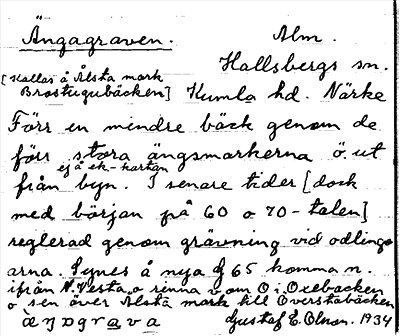 Ängagraven. Alm.
Hallsbergs sn.
[Kallas å Ålsta mark
Brostugubäcken] Kumla hd. Närke
Förr en mindre bäck genom de
förr stora ängsmarkerna ö. ut
ej å ek-kartan
från byn. I senare tider [dock
med början på 60 o 70-talen]
reglerad genom grävning vid odlings
arna. Synes å nya g 65 komma n.
ifrån N. Vesta, o rinna v om O i Oxebäcken
o sen över Ålsta mark till Överstabäcken
äŋograva Gustaf E. Olson. 1934